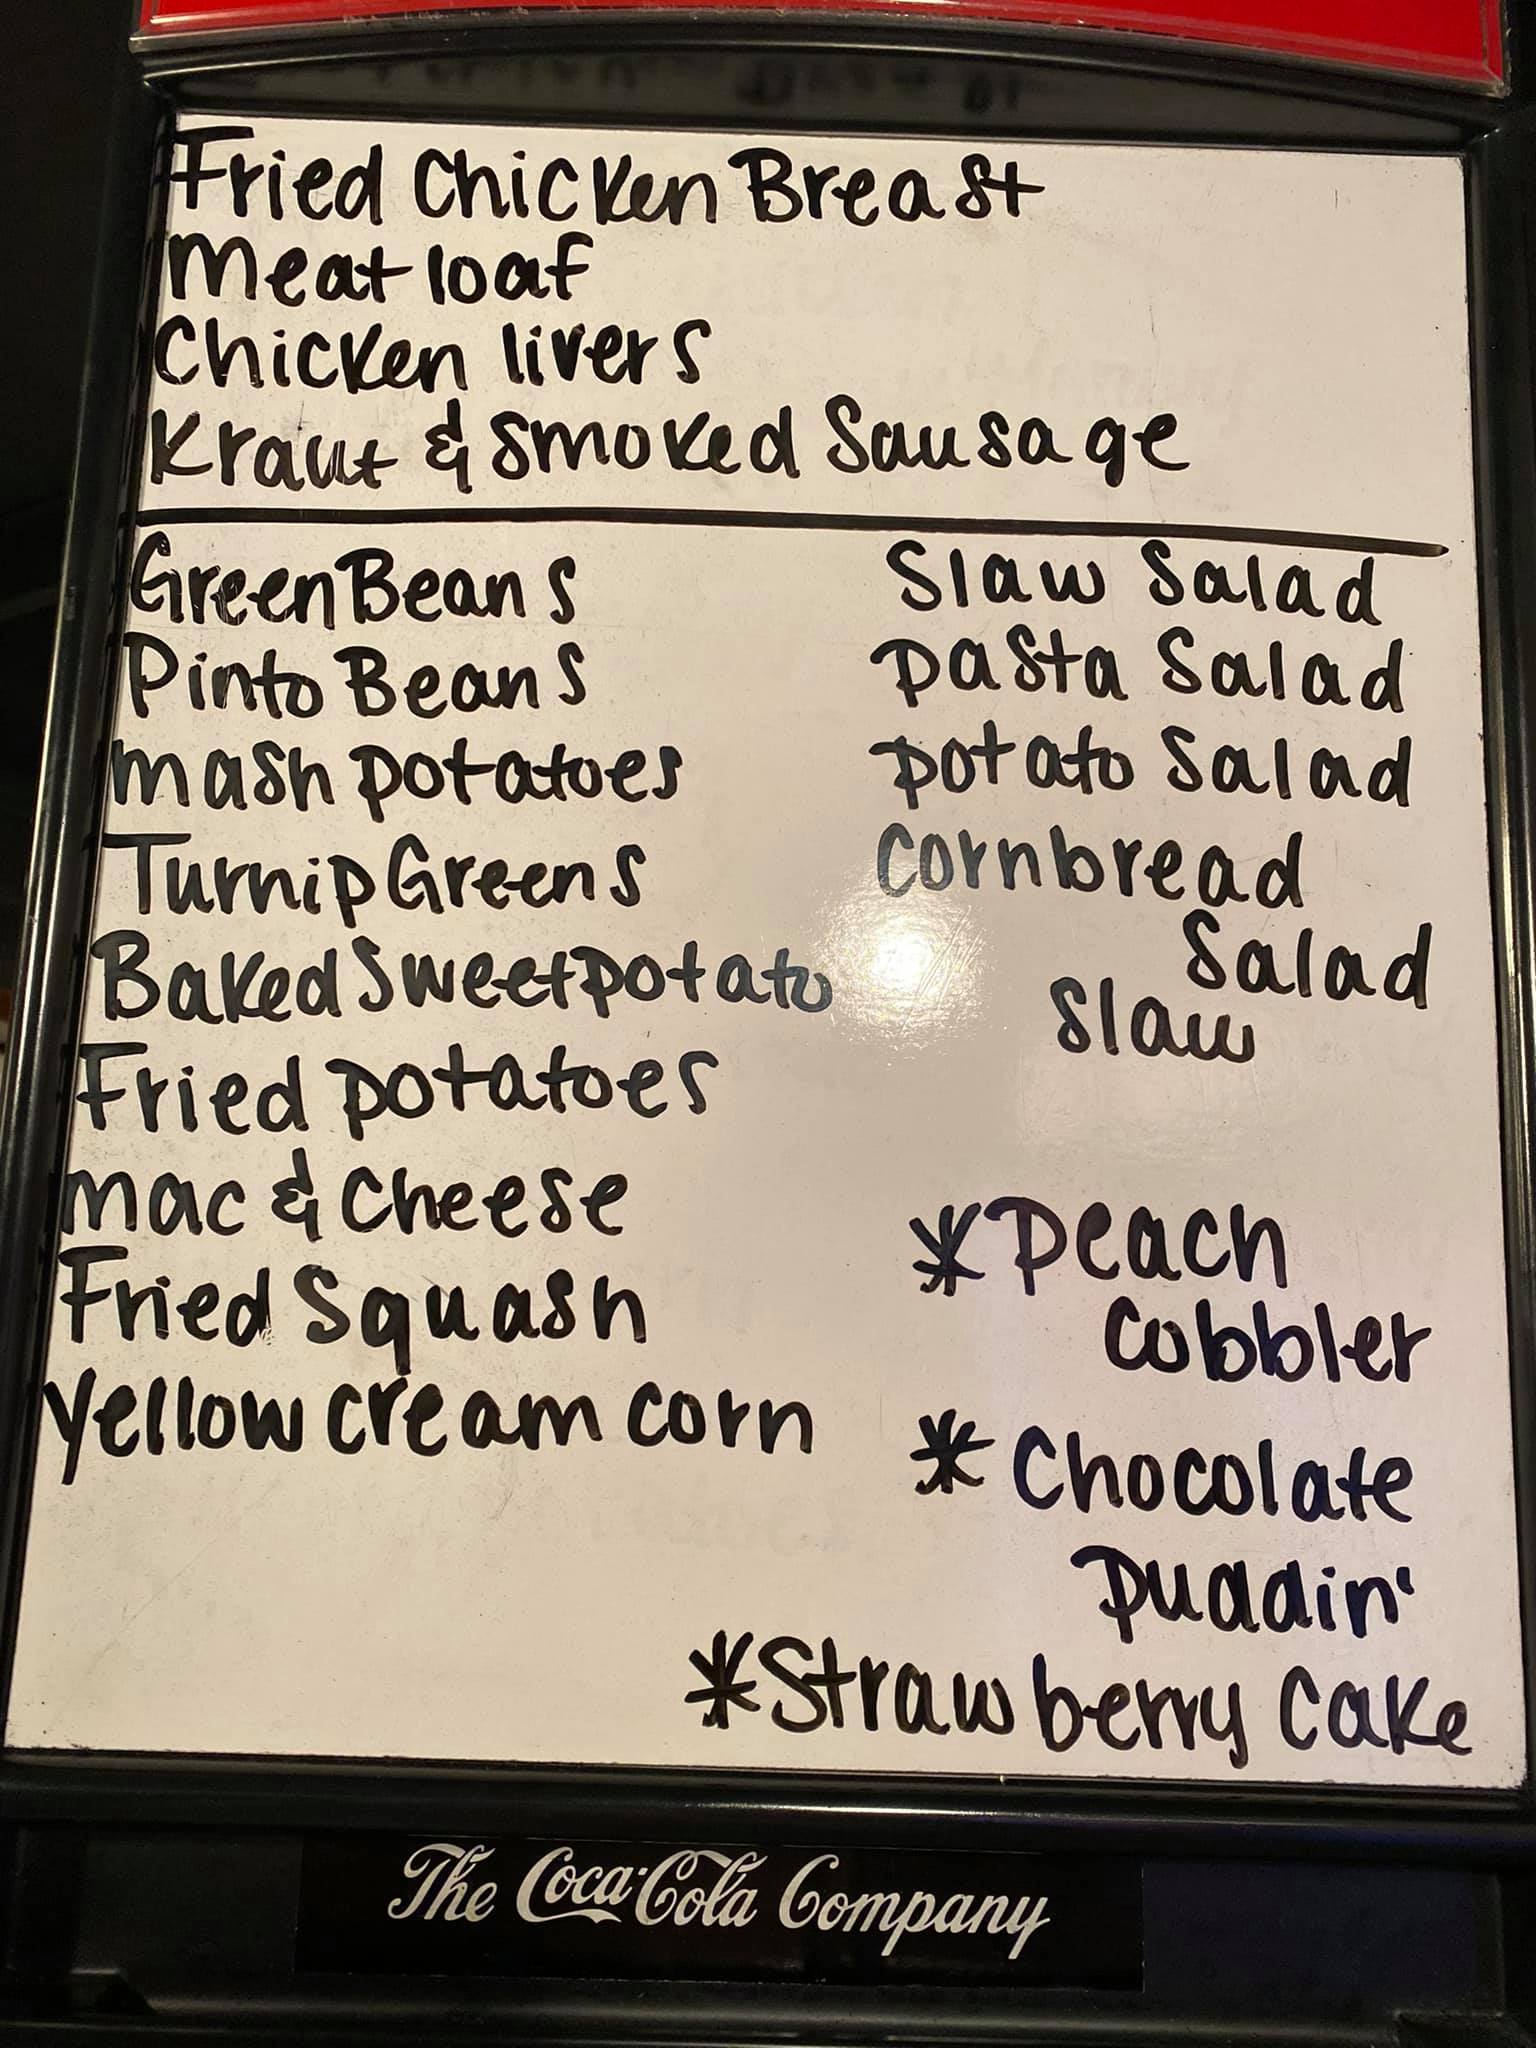 Fried Chicken Breast
Meat loaf
Chicken livers
Kraut & Smoked Sausage
Green Beans
Pinto Beans
mash potatoes
Turnip Greens
Baked Sweet potato
Fried potatoes
mac & Cheese
Fried Squash
yellow cream corn
Slaw Salad
pasta Salad
potato Salad
Cornbread
Salad
Slaw
*Peach
Cobbler
*Chocolate
Puddin'
*Strawberry Cake
The Coca-Cola Company